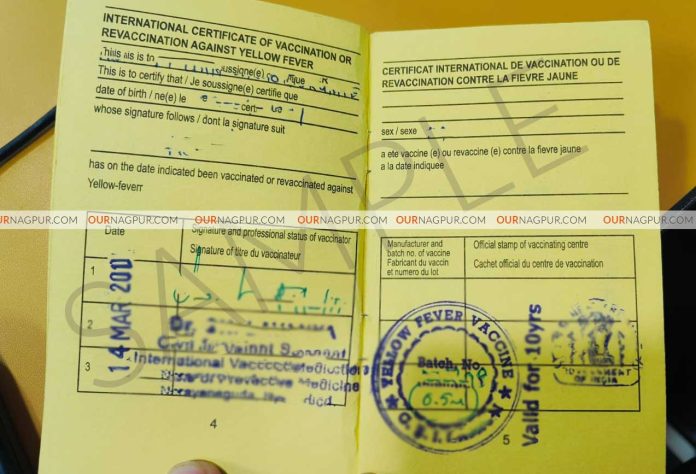 INTERNATIONAL CERTIFICATE OF VACCINATION OR
REVACCINATION AGAINST YELLOW FEVER
This is to certify that / Je soussigne(e) certifie que
date of birth / ne(e) le
whose signature follows / dont la signature suit
has on the date indicated been vaccinated or revaccinated against
Yellow-feverr
Date
Signature and professional status of vaccinator
Signature of titre du vaccinateur
1
14 MAR 200
2
Dr.
3
International
Medicine
4
CERTIFICAT INTERNATIONAL DE VACCINATION OU DE
REVACCINATION CONTRE LA FIEVRE JAUNE
sex / sexe
a ete vaccine (e) ou revaccine (e) contre la fievre jaune
a la date indiquee
Manufacturer and
batch no. of vaccine
Fabricant du vaccin
et numero du lot
Official stamp of vaccinating centre
Cachet official du centre de vaccination
YELLOW FEVER VACCINE
Batch. No
0.5ml
Valid for 10yrs
GOVERNMENT
OF INDIA
5
SAMPLE
OURNAGPUR.COM OURNAGPUR.COM OURNAGPUR.COM OURNAGPUR.COM OURNAGPUR.COM OURNAGPUR.COM OURNAGPUR.COM